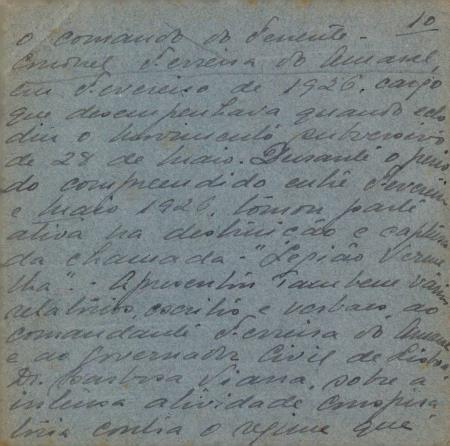 10
o comando do Tenente-
Coronel Ferreira do Amaral,
em Fevereiro de 1926, cargo
que desempenhava quando eclo
diu o movimento subversivo
de 28 de Maio. Durante o perío
do compreendido entre Fevereiro
e Maio 1926, tomou parte
ativa na destruição e captura
da chamada - "Legião Verme
lha". - Apresentou também vários
relatórios, escritos e verbais, ao
comandante Ferreira do Amaral
e ao Governador Civil de Lisboa,
Dr. Barbosa Viana, sobre a
intensa atividade conspira
tória contra o regime que